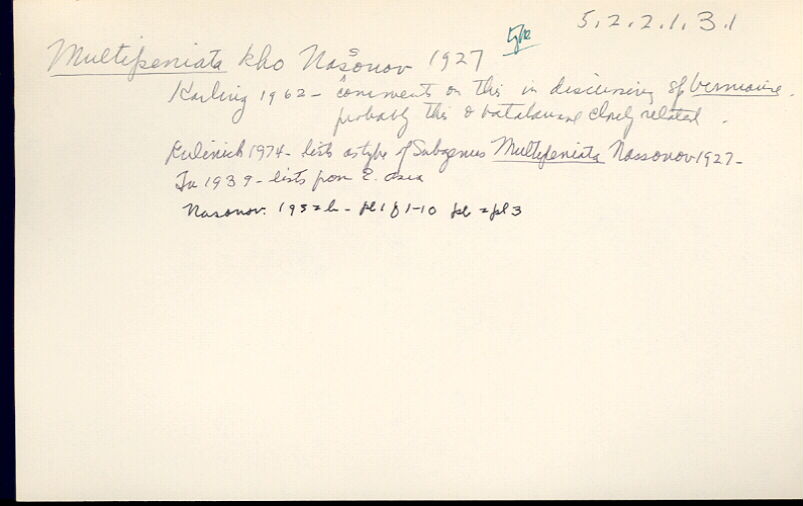 5.2.2.1.3.1
type
Multipeniata kho Nasonov 1927
s
Karling 1962 - comments on this in discussing of
probably this & batalansae closely related.
Kulinich 1974 - lists as type of Subgenus Multipeniata Nassonov 1927 -
Tu 1939 - lists from E. Asia
Nasonov. 1932b - pl 1 f 1-10 pl 2 pl 3